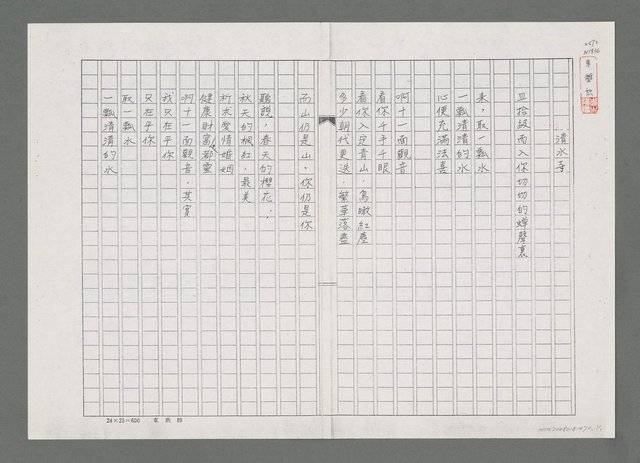 清水寺
且拾級而入你切切的蟬聲裏
來，取一瓢水
一瓢清清的水
心便充滿法喜
啊十一面觀音
看你千手千眼
看你入定青山，鳥瞰紅塵
多少朝代更迭，繁華落盡
而山仍是山，你仍是你
聽說，春天的櫻花，
秋天的楓紅，最美
祈求愛情婚姻
健康財富，都靈
啊十一面觀音，其實
我只在乎你
只在乎你
取一瓢水
一瓢清清的水
24×25=600